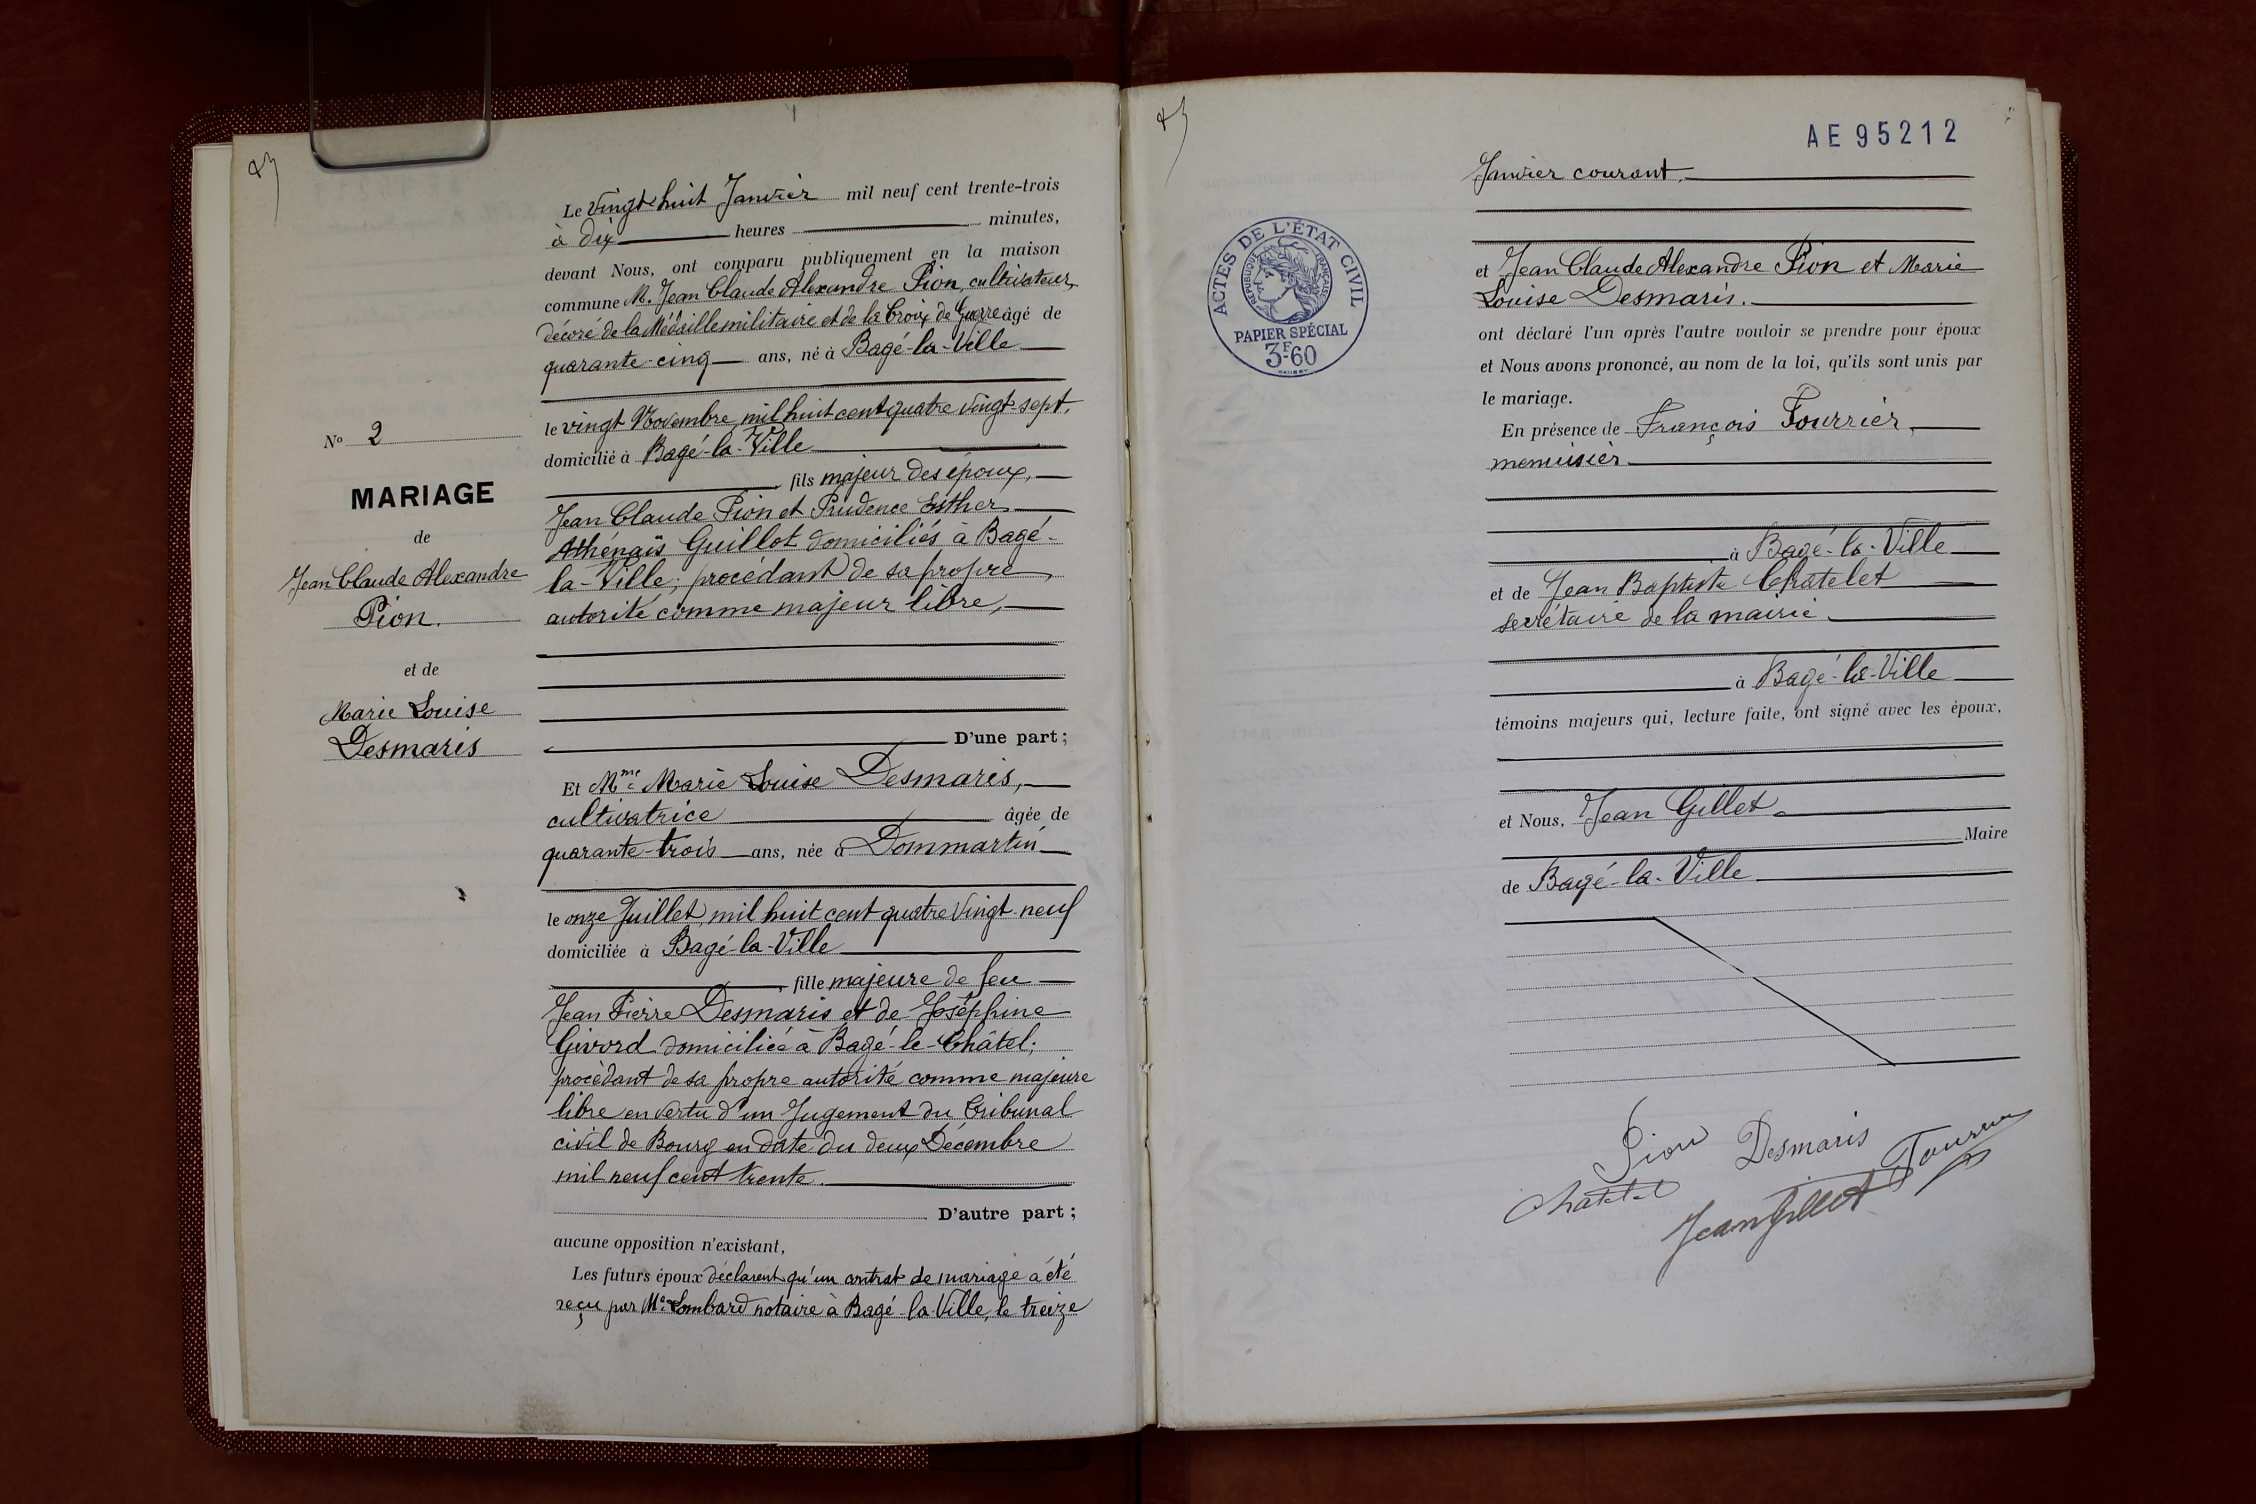 Le vingt-huit Janvier mil neuf cent trente-trois
à dix heures minutes,
devant Nous, ont comparu publiquement en la maison
commune M. Jean Claude Alexandre Pion, cultivateur,
décoré de la Médaille militaire et de la Croix de Guerre âgé de
quarante-cinq ans, né à Bagé-la-Ville
le vingt Novembre mil huit cent quatre vingt-sept,
domicilié à Bagé-la-Ville
, fils majeur des époux,
Jean Claude Pion et Prudence Esther
Athénaïs Guillot domiciliés à Bagé-
la-Ville; procédant de sa propre
autorité comme majeur libre,
D'une part;
Et Mme Marie Louise Desmaris,
cultivatrice âgée de
quarante-trois ans, née à Dommartin
le onze Juillet mil huit cent quatre vingt-neuf
domiciliée à Bagé-la-Ville
, fille majeure de feu
Jean Pierre Desmaris et de Joséphine
Givord domiciliée à Bagé-le-Châtel;
procédant de sa propre autorité comme majeure
libre en vertu d'un Jugement du Tribunal
civil de Bourg en date du deux Décembre
mil neuf cent trente.
D'autre part;
aucune opposition n'existant,
Les futurs époux déclarent qu'un contrat de mariage a été
reçu par Me Lombard notaire à Bagé-la-Ville, le treize
No 2
MARIAGE
de
Jean Claude Alexandre
Pion.
et de
Marie Louise
Desmaris
AE 95212
ACTES DE L'ÉTAT CIVIL
RÉPUBLIQUE FRANÇAISE
PAPIER SPÉCIAL
3F60
Janvier courant.
et Jean Claude Alexandre Pion et Marie
Louise Desmaris.
ont déclaré l'un après l'autre vouloir se prendre pour époux
et Nous avons prononcé, au nom de la loi, qu'ils sont unis par
le mariage.
En présence de François Fourrier,
menuisier
à Bagé-la-Ville
et de Jean Baptiste Chatelet
secrétaire de la mairie
à Bagé-la-Ville
témoins majeurs qui, lecture faite, ont signé avec les époux,
et Nous, Jean Gillet
Maire
de Bagé-la-Ville
Pion Desmaris
Jean Gillet